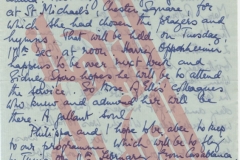 at St Michael's, Chester Square, for
which she had chosen the prayers and
hymns. That will be held on Tuesday
17th Dec. at noon. Harry Oppenheimer
happens to be over next week and
Sidney Spiro hopes he will be able to attend
the service. So Miss A. Ellis's colleagues
who knew and admired her will be
there. A gallant soul.
Philippa and I hope to be able to keep
to our programme which will be to fly
to Tunis on 11th February. From Casablanca